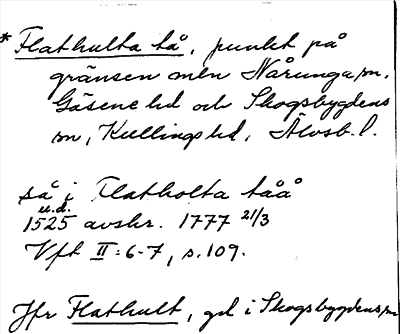 *Flathulta tå, punkt på
gränsen mln Nårunga sn,
Gäsene hd och Skogsbygdens
sn, Kullings hd, Älvsb. l.
så i Flatholta tåå
u.d.
1525 avskr. 1777 21/3
Vft II:6-7, s. 109.
Jfr Flathult, gd i Skogsbygdens sn